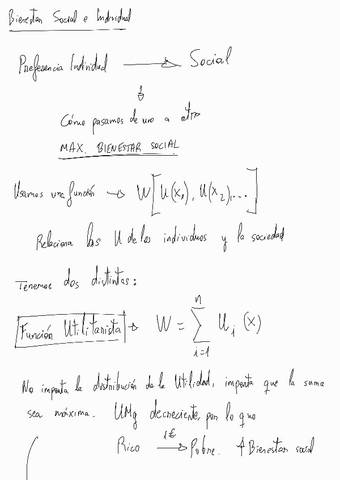 Bienestar Social e Individual
Preferencia Individual → Social
↓
Cómo pasamos de uno a otro
MAX. BIENESTAR SOCIAL
Usamos una función → W[U(x₁), U(x₂),...]
Relaciona las U de los individuos y la sociedad
Tenemos dos distintas:
Función Utilitarista → W = ∑ᵢ₌₁ⁿ Uᵢ(x)
No importa la distribución de la Utilidad, importa que la suma
sea máxima. UMg decreciente, por lo que
1€
Rico → Pobre. ↑ Bienestar social